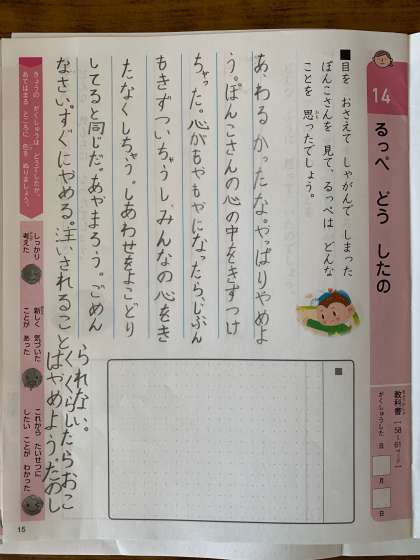 14 るっぺ どう したの
教科書【58〜61ページ】
がくしゅうした 日 月 日
■目を おさえて しゃがんで しまった
ぽんこさんを 見て、るっぺは どんな
ことを 思ったでしょう。
あ、わるかったな。やっぱりやめよ
う。ぽんこさんの心の中をきずつけ
ちゃった。心がもやもやになったら、じぶん
もきずついちゃうし、みんなの心をき
たなくしちゃう。しあわせをよこどり
してると同じだ。あやまろう。ごめん
なさい。すぐにやめる。注いされること
はやめようたのし
くくらしたらおこ
られない。
きょうの がくしゅうは どうでしたか。
あてはまる ところに 色を ぬりましょう。
しっかり
考えた
新しく 気づいた
ことが あった
これから たいせつに
したい ことが わかった
15